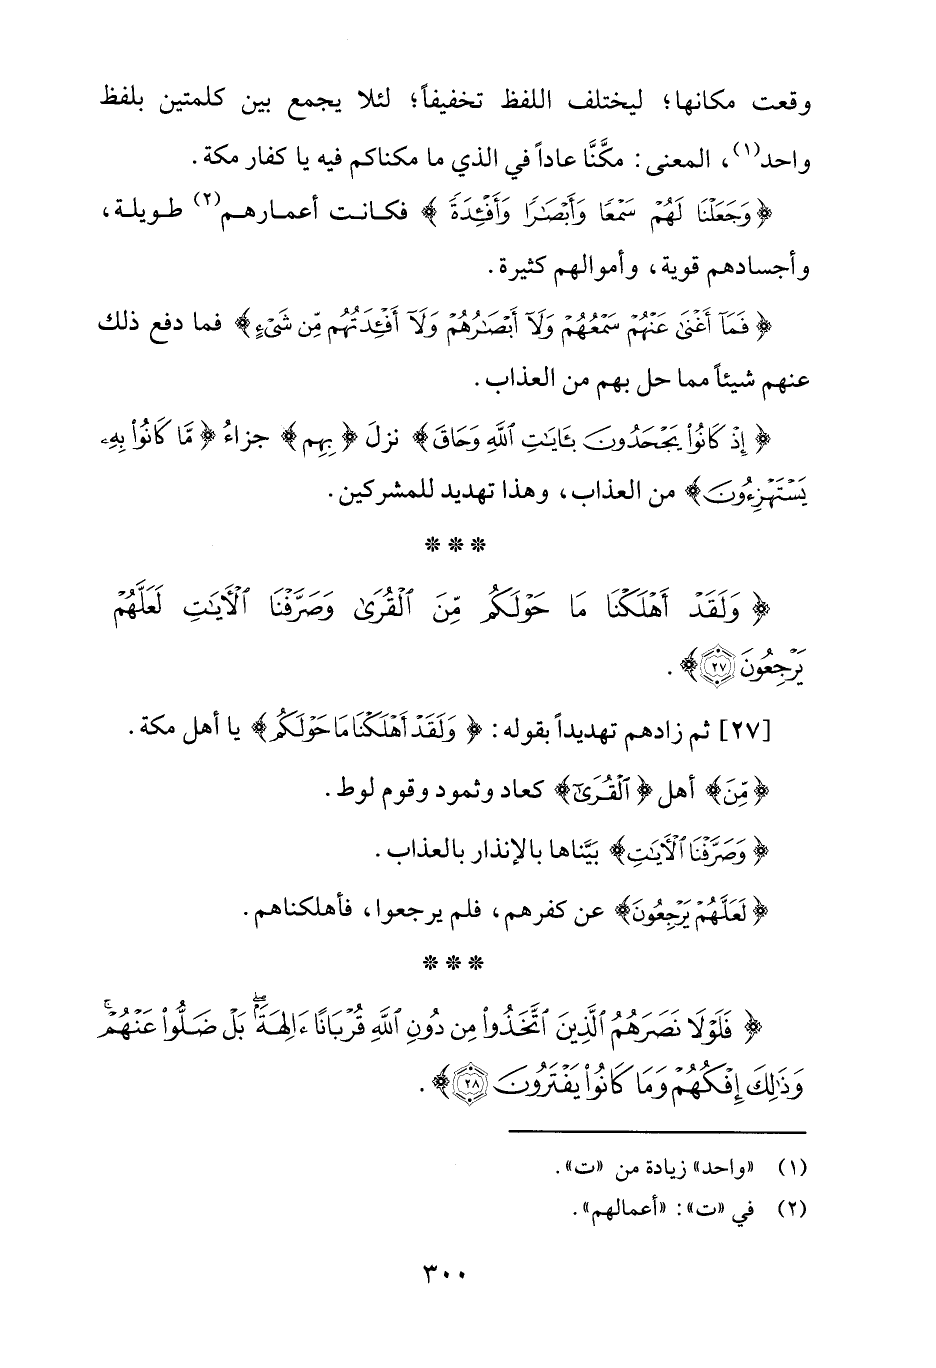 وقعت مكانها؛ ليختلف اللفظ تخفيفاً؛ لئلا يجمع بين كلمتين بلفظ
واحد(١)، المعنى: مكَّنَّا عاداً في الذي ما مكناكم فيه يا كفار مكة.
﴿وَجَعَلْنَا لَهُمْ سَمْعًا وَأَبْصَٰرًا وَأَفْـِٔدَةً﴾ فكانت أعمارهم(٢) طويلة،
وأجسادهم قوية، وأموالهم كثيرة.
﴿فَمَآ أَغْنَىٰ عَنْهُمْ سَمْعُهُمْ وَلَآ أَبْصَٰرُهُمْ وَلَآ أَفْـِٔدَتُهُم مِّن شَىْءٍ﴾ فما دفع ذلك
عنهم شيئاً مما حل بهم من العذاب.
﴿إِذْ كَانُوا۟ يَجْحَدُونَ بِـَٔايَٰتِ ٱللَّهِ وَحَاقَ﴾ نزلَ ﴿بِهِم﴾ جزاءُ ﴿مَّا كَانُوا۟ بِهِۦ
يَسْتَهْزِءُونَ﴾ من العذاب، وهذا تهديد للمشركين.
***
﴿وَلَقَدْ أَهْلَكْنَا مَا حَوْلَكُم مِّنَ ٱلْقُرَىٰ وَصَرَّفْنَا ٱلْأَيَٰتِ لَعَلَّهُمْ
يَرْجِعُونَ ٢٧﴾.
[٢٧] ثم زادهم تهديداً بقوله: ﴿وَلَقَدْ أَهْلَكْنَا مَا حَوْلَكُم﴾ يا أهل مكة.
﴿مِّنَ﴾ أهل ﴿ٱلْقُرَىٰ﴾ كعاد وثمود وقوم لوط.
﴿وَصَرَّفْنَا ٱلْأَيَٰتِ﴾ بيَّناها بالإنذار بالعذاب.
﴿لَعَلَّهُمْ يَرْجِعُونَ﴾ عن كفرهم، فلم يرجعوا، فأهلكناهم.
***
﴿فَلَوْلَا نَصَرَهُمُ ٱلَّذِينَ ٱتَّخَذُوا۟ مِن دُونِ ٱللَّهِ قُرْبَانًا ءَالِهَةًۢ ۖ بَلْ ضَلُّوا۟ عَنْهُمْ ۚ
وَذَٰلِكَ إِفْكُهُمْ وَمَا كَانُوا۟ يَفْتَرُونَ ٢٨﴾.
(١) «واحد» زيادة من «ت».
(٢) في «ت»: «أعمالهم».
٣٠٠